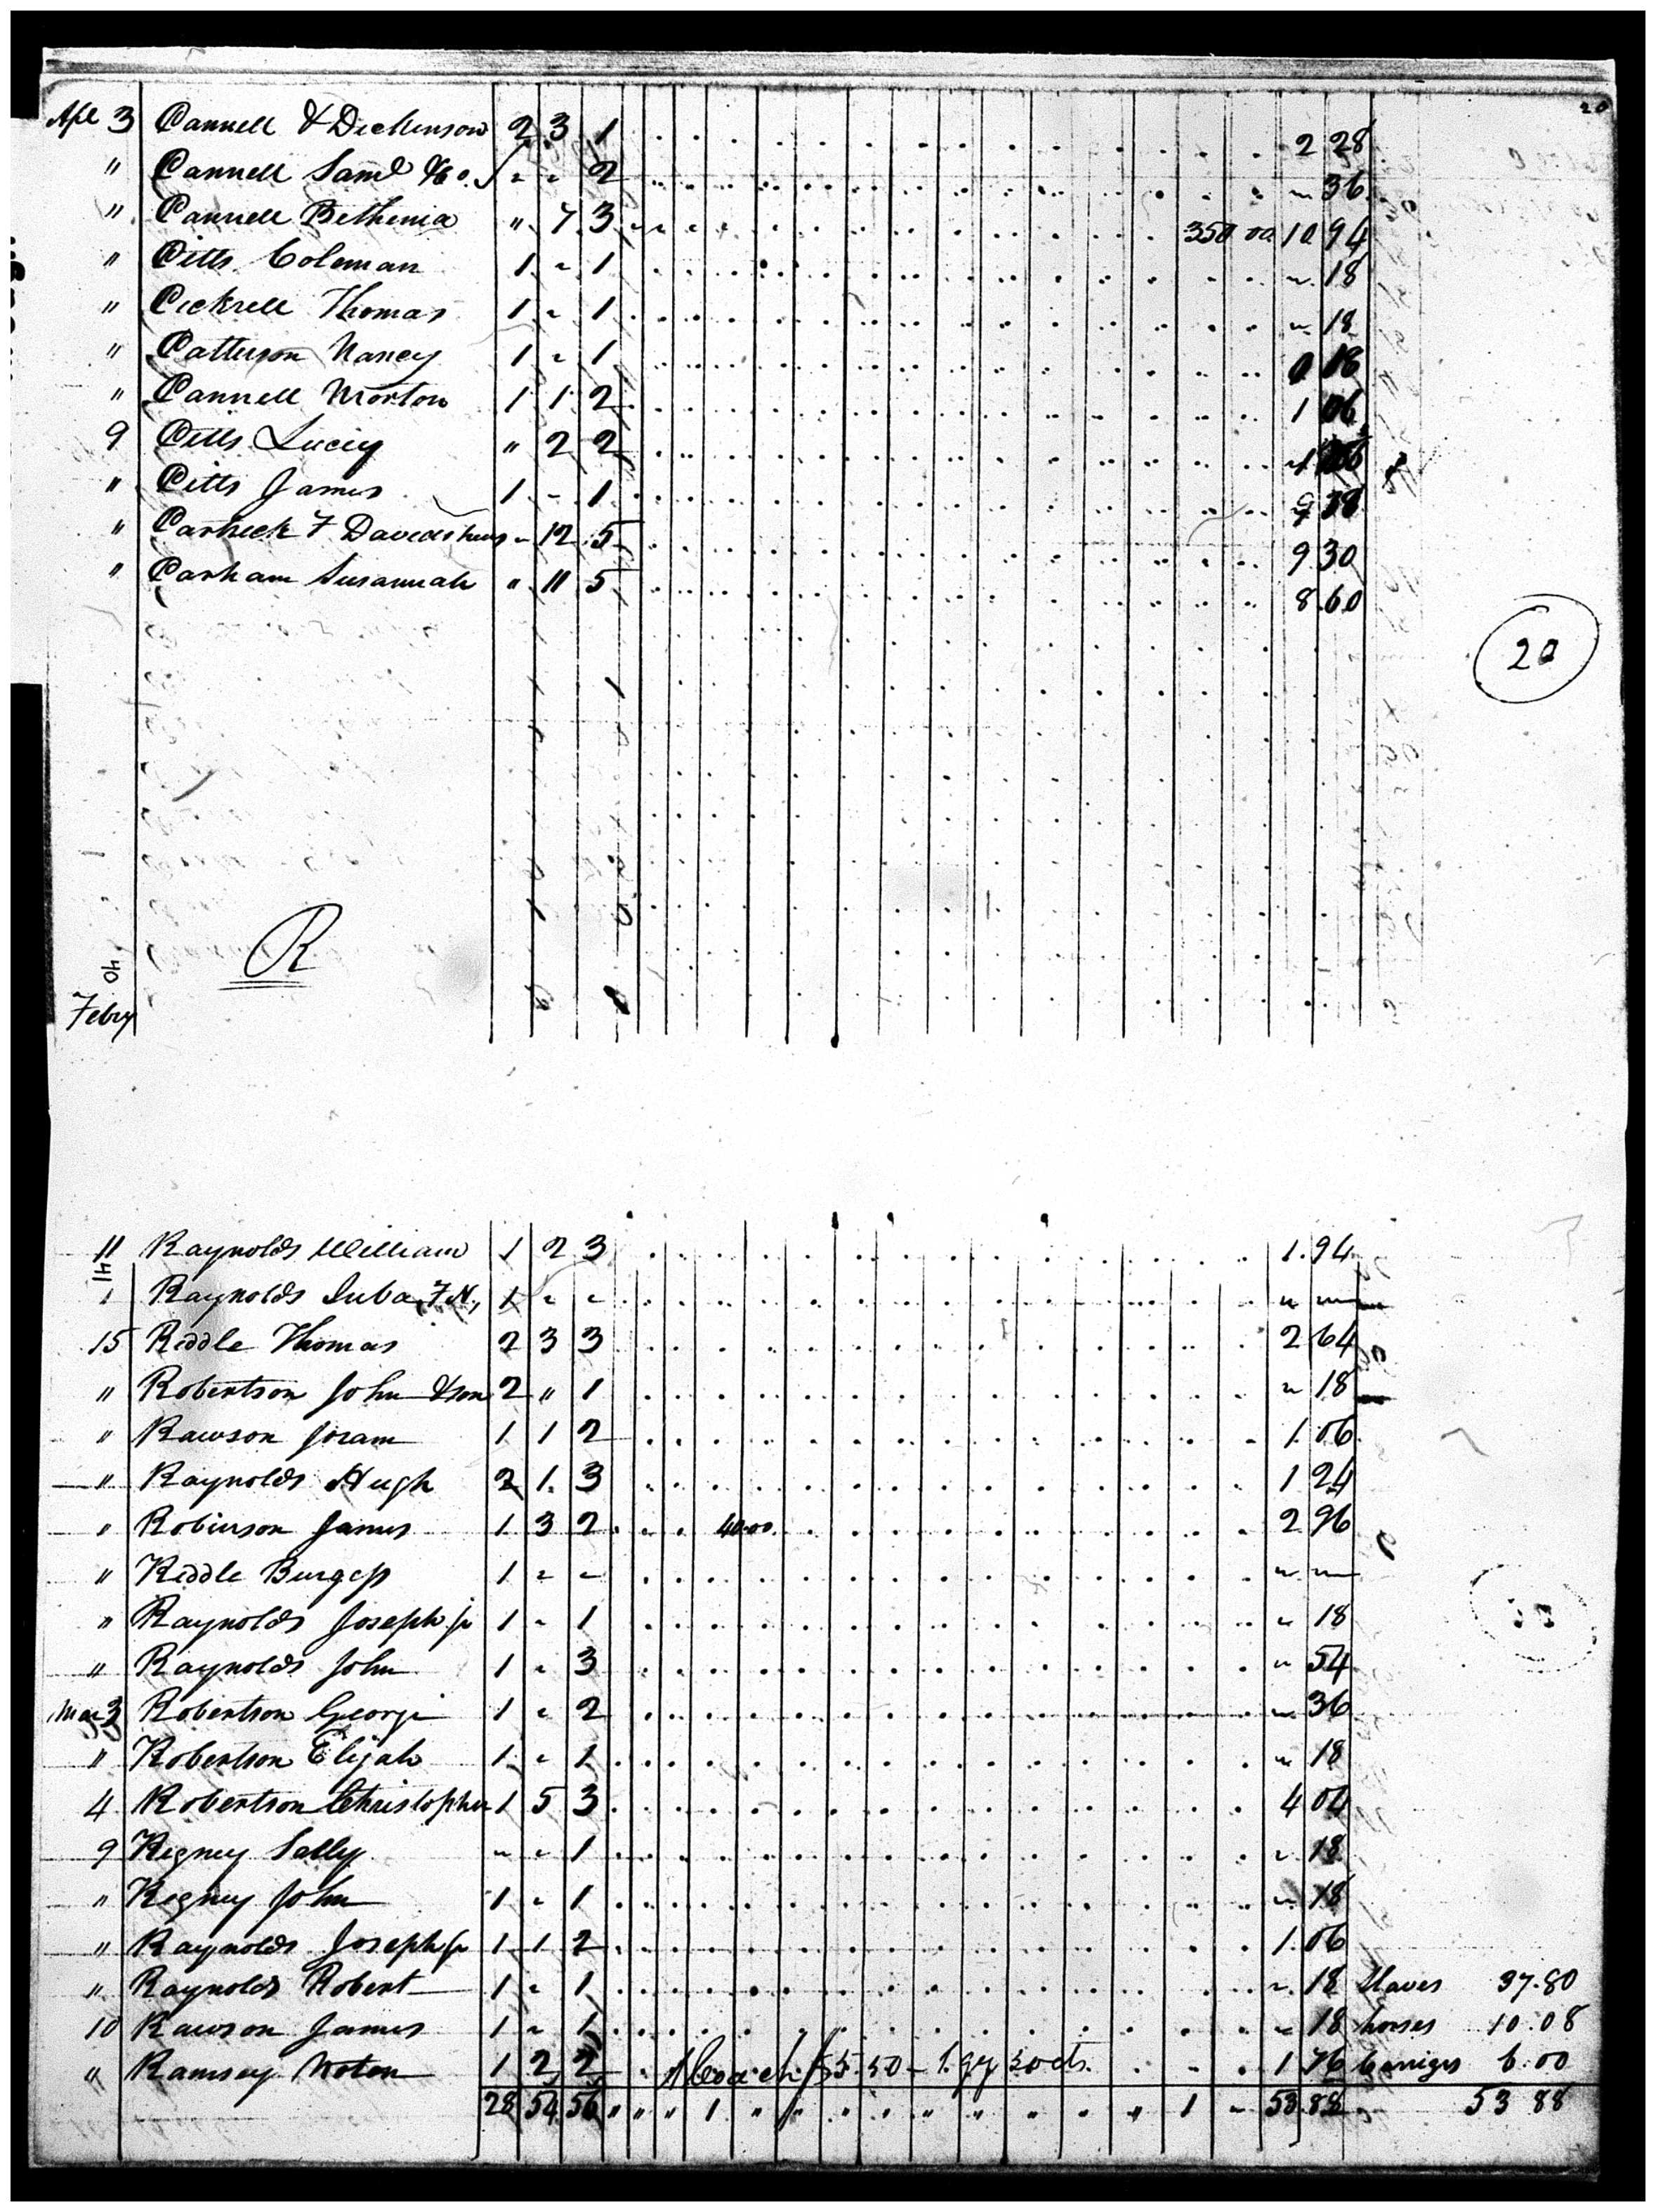 20
Apl 3 Pannell & Dickenson 2 3 1 2 28
" Pannell Saml & Co. - - 2 36
" Pannell Bethenia " 7 3 350 00 10 94
" Pitts Coleman 1 - 1 18
" Pickrell Thomas 1 - 1 18
" Patterson Nancy 1 - 1 0 18
" Pannell Morton 1 1 2 1 06
9 Pitts Lucy " 2 2
" Pitts James 1 - 1
" Davideshens - 12 5 9 30
" Parham Susannah " 11 5 8 60
20
R
40
Febry
11 Raynolds William 1 2 3 1.94
41
Raynolds Juba F N, 1 - -
15 Riddle Thomas 2 3 3 2 64
" Robertson John & son 2 " 1 18
" Rawson Joram 1 1 2 1.06
" Raynolds Hugh 2 1 3 1 24
" Robinson James 1 3 2 40.00 2 96
" Riddle Burgess 1 - -
" Raynolds Joseph jr 1 - 1 18
" Raynolds John 1 - 3 54
Mar 3 Robertson George 1 - 2 36
" Robertson Elijah 1 - 1 18
4 Robertson Christopher 1 5 3 4 04
9 Rigney Sally - - 1 18
" Rigney John 1 - 1 18
" Raynolds Joseph 1 1 2 1.06
" Raynolds Robert 1 - 1 18 Slaves 37.80
10 Rawson James 1 - 1 18 horses 10.08
" Ramsey Noten 1 2 2 1 Coach 1 gig 50 cts. 1 76 Carriges 6.00
28 54 56 " " " 1 " " " " " " " " " 1 - 53.88 53 88